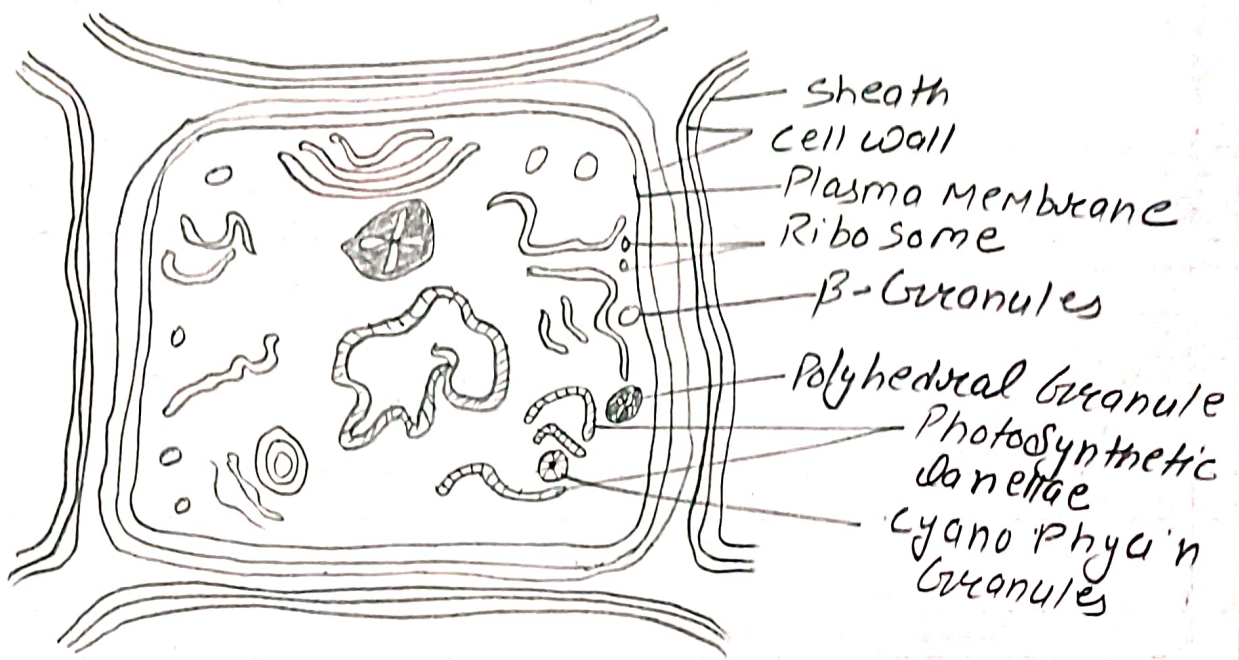 Sheath
Cell wall
Plasma Membrane
Ribosome
β-Granules
Polyhedral Granule
Photosynthetic
lamellae
Cyano Phycin
Granules